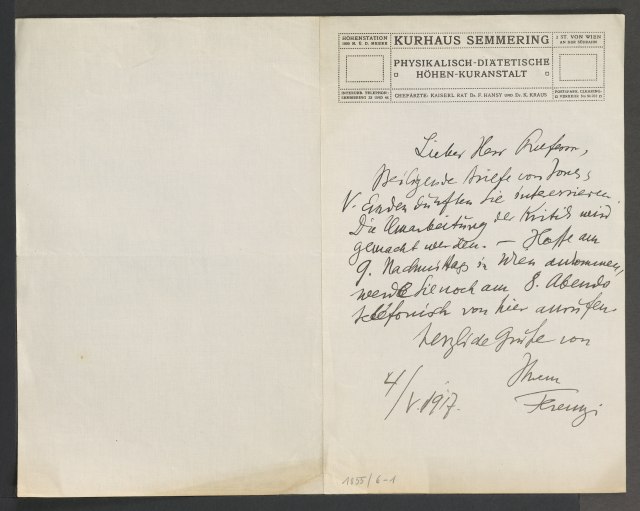 HÖHENSTATION
KURHAUS SEMMERING
2 ST. VON WIEN
AN DER SÜDBAHN
PHYSIKALISCH-DIÄTETISCHE
HÖHEN-KURANSTALT
INTERURB. TELEPHON
CHEFÄRZTE: KAISERL. RAT Dr. F. HANSY UND Dr. K. KRAUS
Lieber Herr Professor,
Beiliegende Briefe von Jones,
v. Emden dürften Sie interessieren.
Die Umarbeitung der Kritik wird
gemacht werden. — Hoffe am
9. Nachmittags in Wien anzukommen,
werde Sie noch am 8. Abends
telefonisch von hier anrufen.
Herzliche Grüße von
Ihrem
Ferenczi
4/V. 1917.
1055/6-1